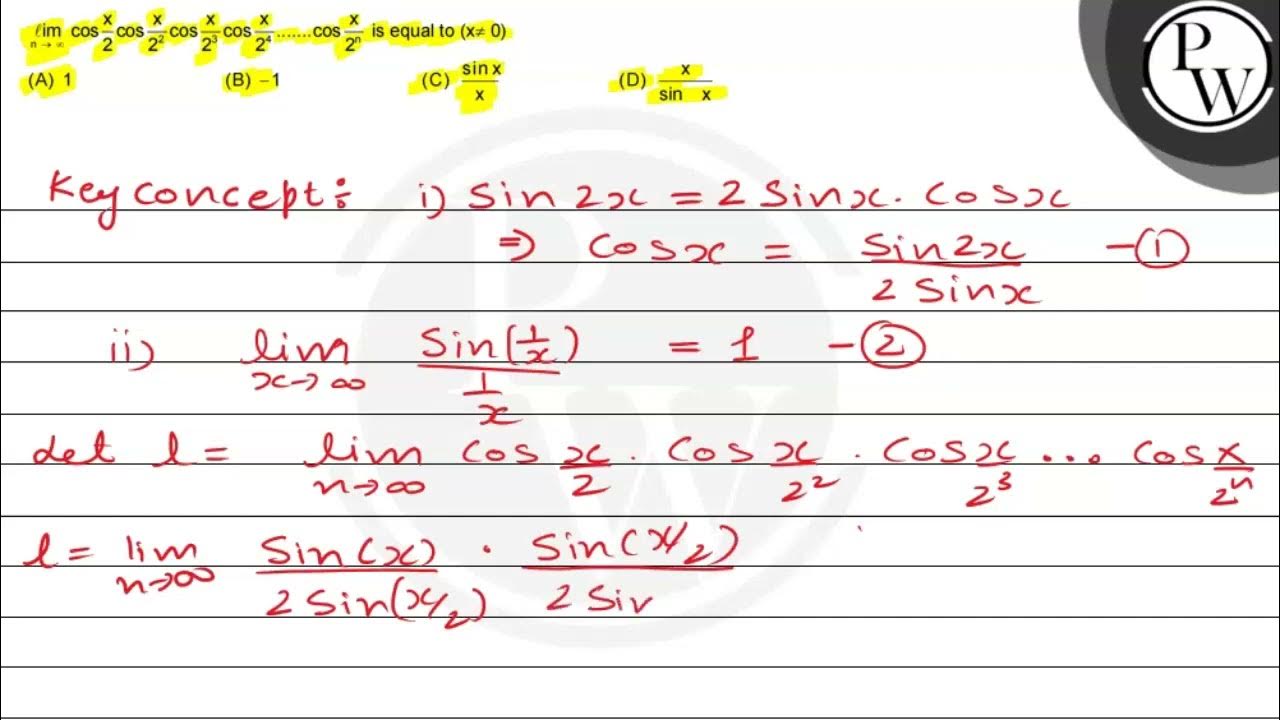 lim n → ∞ cos x/2 cos x/2² cos x/2³ cos x/2⁴ ....... cos x/2ⁿ is equal to (x≠ 0)
(A) 1 (B) –1 (C) sin x/x (D) x/sin x
P
W
Key concept: i) Sin 2x = 2 Sinx. Cosx
⇒ Cosx = Sin2x/2 Sinx –①
ii) lim x→∞ Sin(1/x)/(1/x) = 1 –②
det l = lim n→∞ Cos x/2 . Cos x/2² . Cos x/2³ ... Cos x/2ⁿ
l = lim n→∞ Sin(x)/2 Sin(x/2) . Sin(x/2)/2 Sin